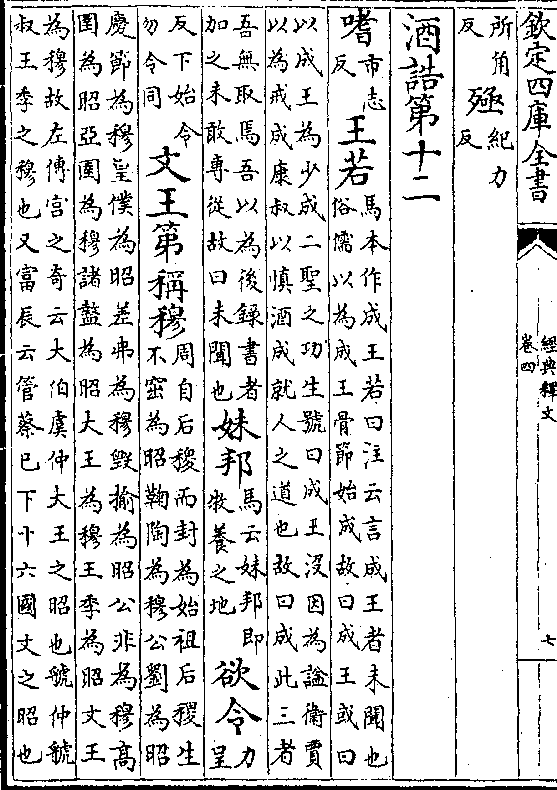 欽定四庫全書
經典釋文
卷四
七
所角反 殛 紀力反
酒誥第十二
嗜 市志反 王若 馬本作成王若曰注云言成王者未聞也俗儒以為成王骨節始成故曰成王或曰
以成王為少成二聖之功生號曰成王没因為諡衛賈以為戒成康叔以慎酒成就人之道也故曰成此三者
吾無取焉吾以為後録書者加之未敢専從故曰未聞也 妹邦 馬云妹邦即牧養之地 欲令 力呈
反下始令勿令同 文王第稱穆 周自后稷而封為始祖后稷生不窋為昭鞠陶為穆公劉為昭
慶節為穆皇僕為昭差弗為穆毁揄為昭公非為穆髙圉為昭亞圉為穆諸盩為昭大王為穆王季為昭文王
為穆故左傳宫之奇云大伯虞仲大王之昭也虢仲虢叔王季之穆也又富辰云管蔡已下十六國文之昭也